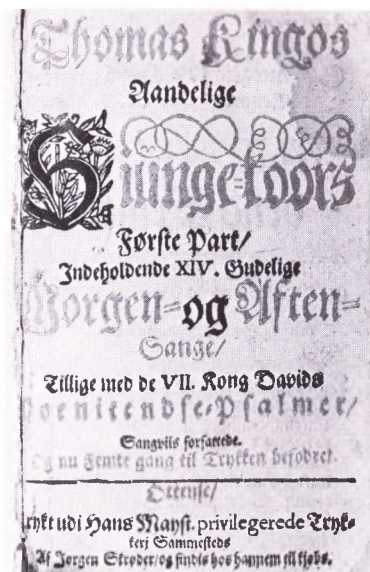 Thomas Kingos
Aandelige
Siunge-koors
Første Part/
Indeholdende XIV. Gudelige
Morgen= og Aften=
Sange/
Tillige med de VII. Kong Davids
Poenitendse-Psalmer/
Sangviis forfattede.
Og nu Femte gang til Trykken befodret.
Ottense/
Trykt udi Hans Mayst. privilegerede Tryk-
kerj Sammesteds
Af Jørgen Skrøder/og findis hos hannem til kiøbs.